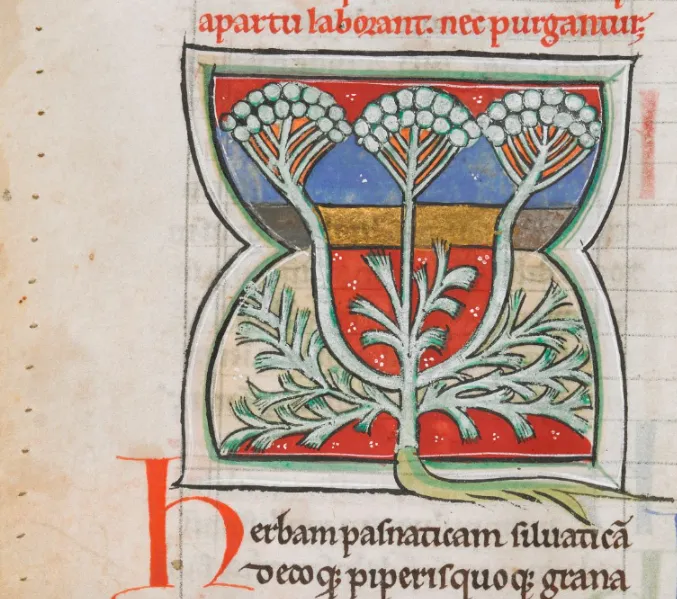 apartu laborant. nec purgantur;
herbam pasnaticam siluaticā
decoq; piperisquoq; grana